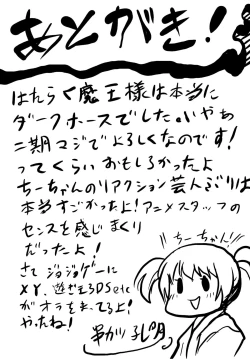 あとがき!
はたらく魔王様は本当に
ダークホースでした。いやぁ
二期マジでよろしくなのです!
ってくらいおもしろかったよ
ちーちゃんのリアクション芸人ぶりは
本当すごかったよ!アニメスタッフの
センスを感じまくり
だったよ!
さてジョジョゲーに
XY、遊ぜえるDSetc
がオラをまってるよ!
やったね!
ちーちゃん!
串かつ孔明